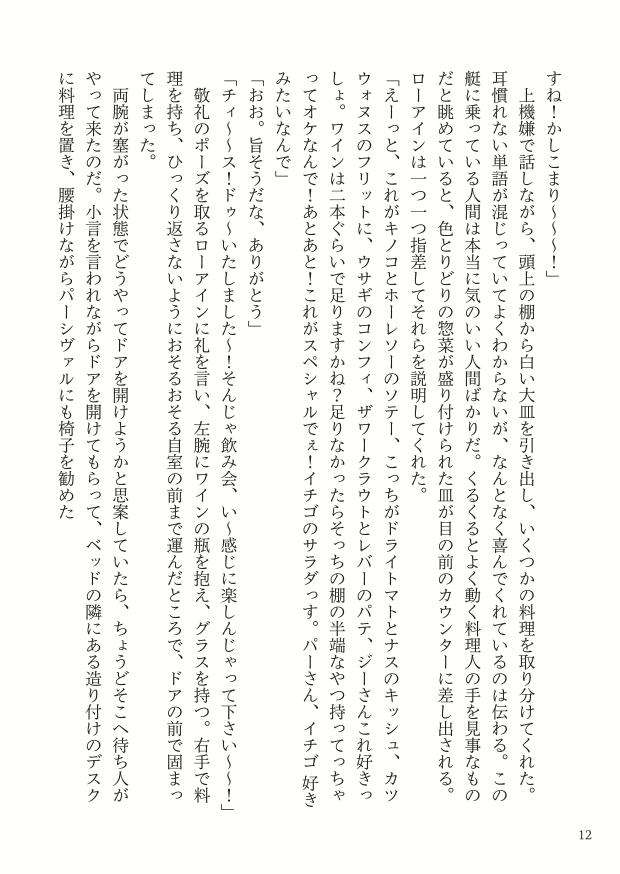 すね！かしこまり～～～！」
　上機嫌で話しながら、頭上の棚から白い大皿を引き出し、いくつかの料理を取り分けてくれた。
耳慣れない単語が混じっていてよくわからないが、なんとなく喜んでくれているのは伝わる。この
艇に乗っている人間は本当に気のいい人間ばかりだ。くるくるとよく動く料理人の手を見事なもの
だと眺めていると、色とりどりの惣菜が盛り付けられた皿が目の前のカウンターに差し出される。
ローアインは一つ一つ指差してそれらを説明してくれた。
「えーっと、これがキノコとホーレソーのソテー、こっちがドライトマトとナスのキッシュ、カツ
ウォヌスのフリットに、ウサギのコンフィ、ザワークラウトとレバーのパテ、ジーさんこれ好きっ
しょ。ワインは二本ぐらいで足りますかね？足りなかったらそっちの棚の半端なやつ持ってっちゃ
ってオケなんで！あとあと！これがスペシャルでぇ！イチゴのサラダっす。パーさん、イチゴ 好き
みたいなんで」
「おお。旨そうだな、ありがとう」
「チィ～～ス！ドゥ～いたしました～！そんじゃ飲み会、い～感じに楽しんじゃって下さい～～！」
　敬礼のポーズを取るローアインに礼を言い、左腕にワインの瓶を抱え、グラスを持つ。右手で料
理を持ち、ひっくり返さないようにおそるおそる自室の前まで運んだところで、ドアの前で固まっ
てしまった。
　両腕が塞がった状態でどうやってドアを開けようかと思案していたら、ちょうどそこへ待ち人が
やって来たのだ。小言を言われながらドアを開けてもらって、ベッドの隣にある造り付けのデスク
に料理を置き、腰掛けながらパーシヴァルにも椅子を勧めた
12